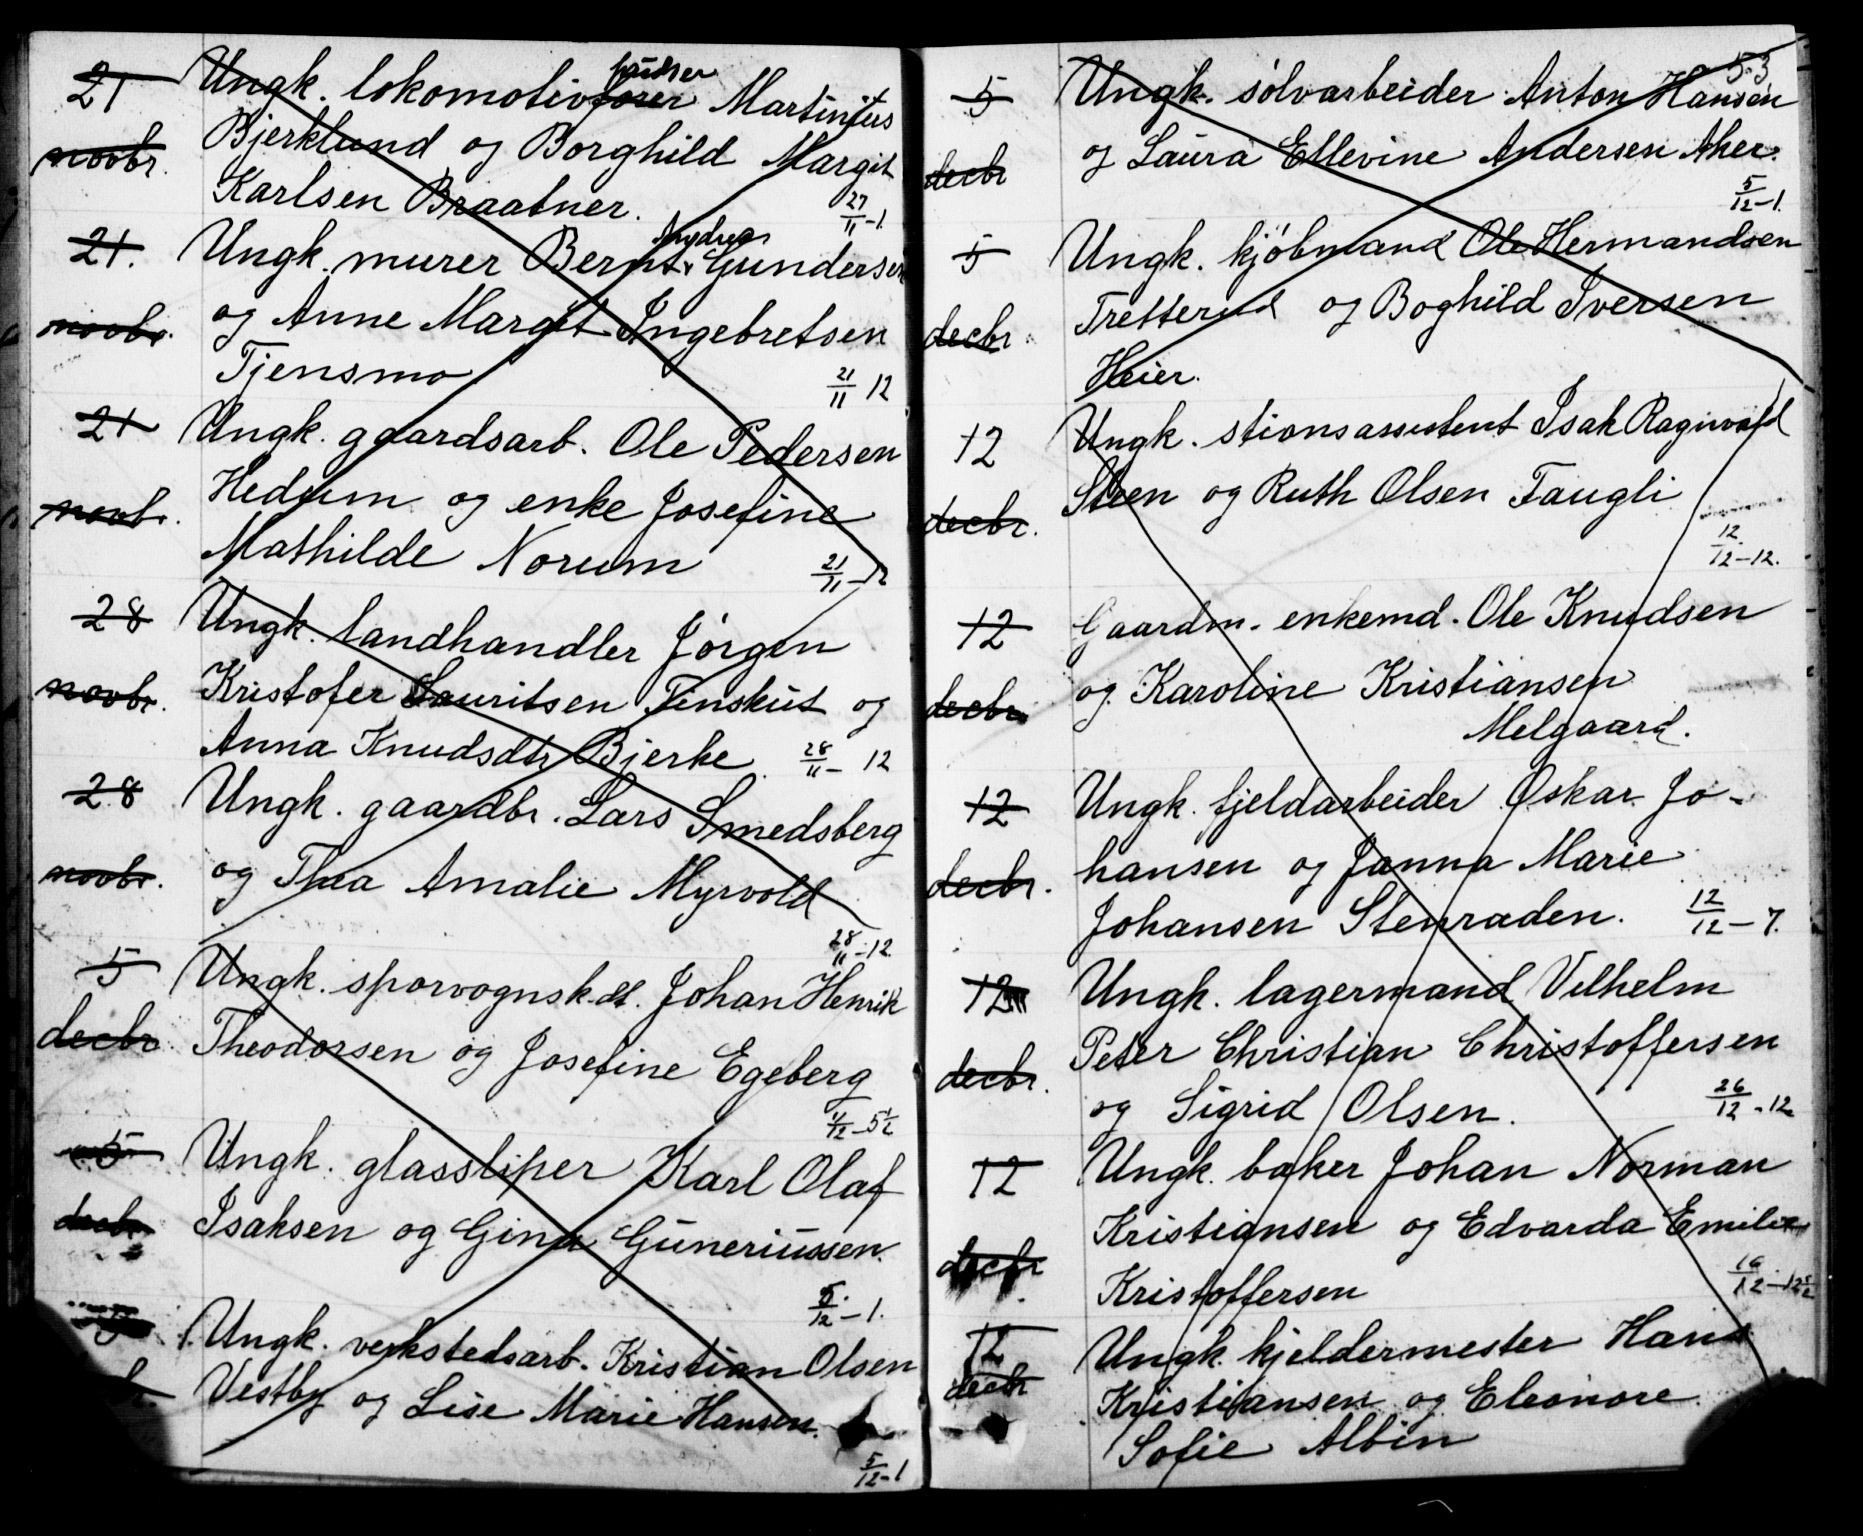 21 Ungk. lokomotivfører pudser Martinius
novbr. Bjerklund og Borghild Margit
Karlsen Braatner. 27/11-1
21. Ungk. murer Bernt Andreas Gundersen
novbr. og Anne Margit Ingebretsen
Tjensmo 21/11 12
21 Ungk. gaardsarb. Ole Pedersen
novbr. Hedum og enke Josefine
Mathilde Norum 21/11-12
28 Ungk. landhandler Jörgen
novbr. Kristofer Lauritsen Finskut og
Anna Knudsdtr Bjerke 28/11- 12
28 Ungk. gaardbr. Lars Smedsberg
novbr. og Thea Amalie Myrvold
28/11-12
5 Ungk. sporvognsk. Johan Henrik
decbr. Theodorsen og Josefine Egeberg
4/12-5½
5 Ungk. glassliper Karl Olaf
decbr. Isaksen og Gina Guneriussen.
5/12-1.
Ungk. verkstedsarb. Kristian Olsen
Vestby og Lise Marie Hansen.
5/12-1
5-3
5 Ungk. sölvarbeider Anton Hansen
decbr og Laura Ellevine Andersen Aker.
5/12-1.
5 Ungk. kjöbmand Ole Hermandsen
decbr. Tretterud og Boghild Iversen
Heier.
12 Ungk. stionsassistent Isak Ragnvald
decbr. Steen og Ruth Olsen Faugli
12/12-12.
12 Gaardm. enkemd. Ole Knudsen
decbr. og Karoline Kristiansen
Melgaard.
12 Ungk. fjeldarbeider Oskar Jo-
decbr. hansen og Janna Marie
Johansen Stenraden. 12/12-7.
12 Ungk. lagermand Vilhelm
decbr. Peter Christian Christoffersen
og Sigrid Olsen. 26/12-12
12 Ungk. baker Johan Norman
decbr Kristiansen og Edvarda Emilie
Kristoffersen 16/12-12½
12 Ungk. kjeldermester Hans
decbr Kristiansen og Eleonore
Sofie Albin